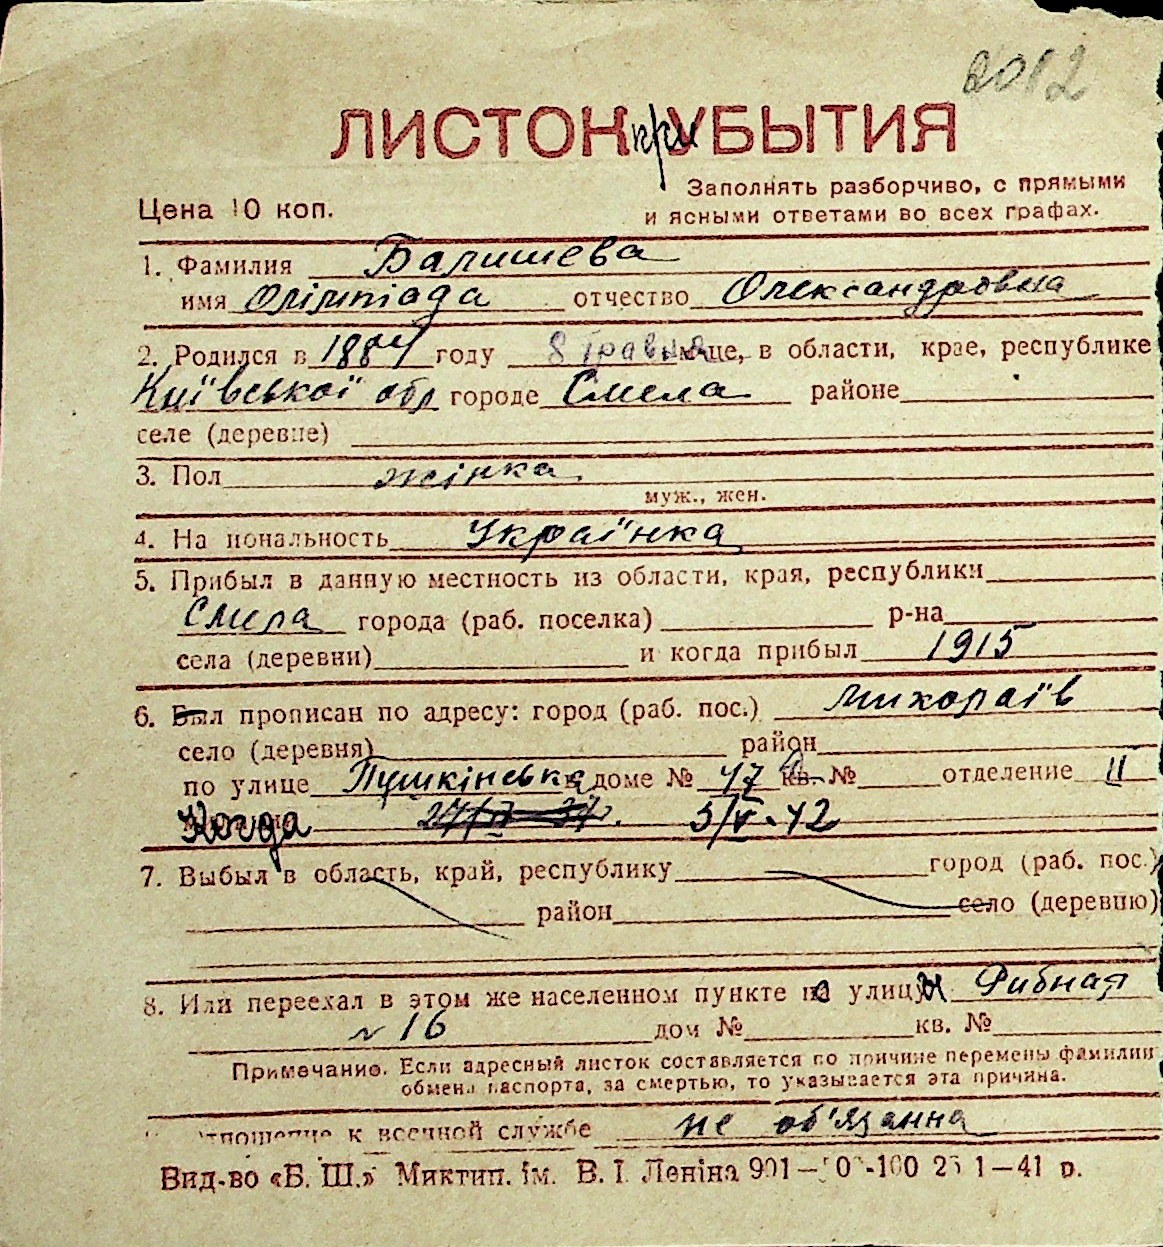 2012
ЛИСТОК при УБЫТИЯ
Заполнять разборчиво, с прямыми
Цена 10 коп. и ясными ответами во всех графах.
1. Фамилия Балишева
имя Олімпіада отчество Олександровна
2. Родился в 1884 году 8 травня м-це, в области, крае, республике
Київської обл городе Смела районе
селе (деревне)
3. Пол жінка
муж., жен.
4. На иональность Українка
5. Прибыл в данную местность из области, края, республики
Смила города (раб. поселка) р-на
села (деревни) и когда прибыл 1915
6. Был прописан по адресу: город (раб. пос.) Миколаїв
село (деревня) район
по улице Пушкінська доме № 47 кв. № отделение II
Когда 5/V-42
7. Выбыл в область, край, республику город (раб. пос.)
район село (деревню)
8. Или переехал в этом же населенном пункте на улицы Рибная
№ 16 дом № кв. №
Примечание. Если адресный листок составляется по причине перемены фамилии
обмена паспорта, за смертью, то указывается эта причина.
отношение к военной службе не об'язанна
Вид-во «Б. Ш.» Миктип. ім. В. І. Леніна 901— 1—41 р.